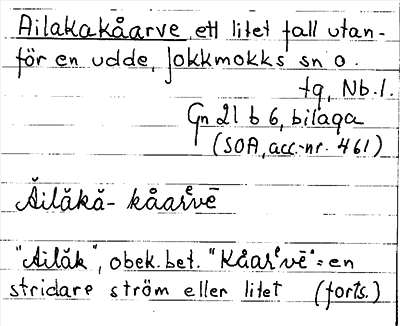 Ailakakåarve, ett litet fall utan-
för en udde, Jokkmokks sn o.
tg, Nb.l.
Gn 21 b 6, bilaga
(SOA, acc.-nr. 461)
Äilăkă- kåarᵉvē
"Ailăk", obek. bet. "Kåarᵉvē" = en
stridare ström eller litet (forts.)